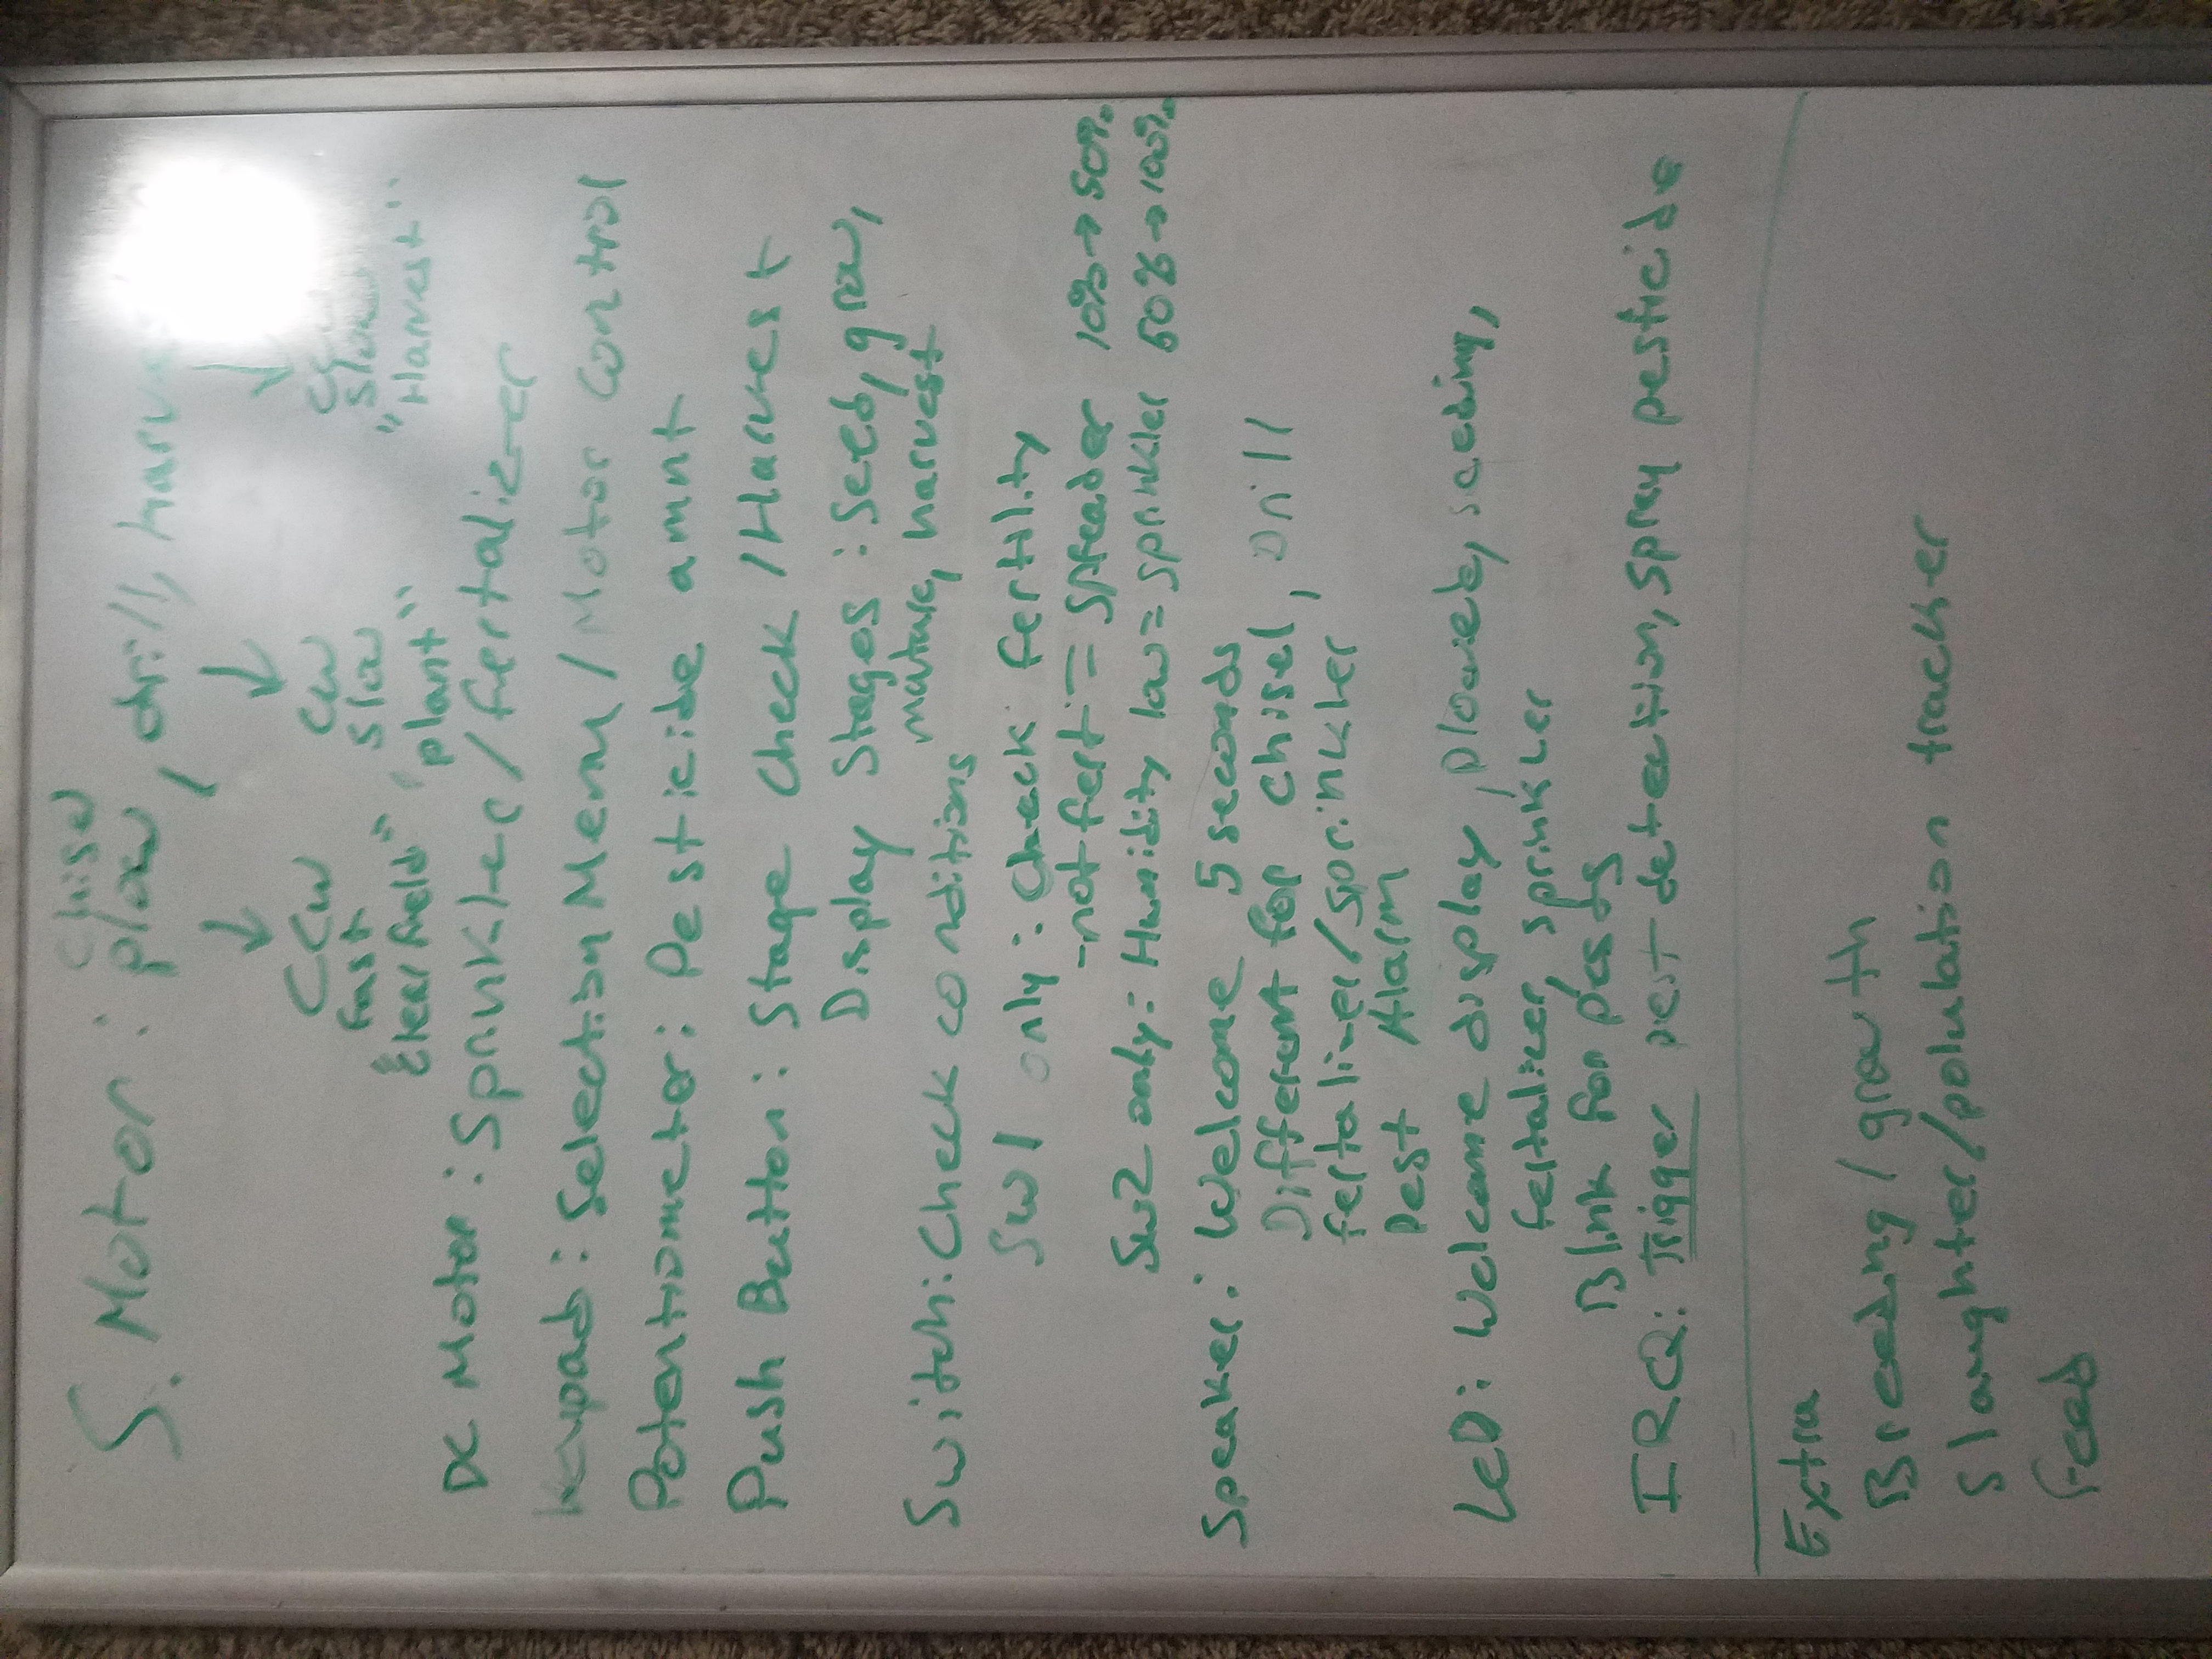 Chisel
S. Motor: plow, drill, harv
CCW CW CCW
Fast Slow Slow
"Clear field" "plant" "Harvest"
DC Motor: Sprinkler/fertalizer
Keypad: Selection Menu / Motor control
Potentiometer: Pesticide amnt
Push Button: Stage Check / Harvest
Display Stages: Seed, grow,
mature, harvest
Switch: Check conditions
SW1 only: Check fertility
-not fert = spreader 10% → 50%
SW2 only: Humidity low = sprinkler 50% → 100%
Speaker: Welcome 5 seconds
Different for chisel, Drill
fertalizer/sprinkler
Pest Alarm
LED: Welcome display, plowed, seeding,
fertalizer, sprinkler
Blink for pests
IRQ: Trigger pest detection, spray pesticide
Extra
Breeding / growth
Slaughter/polulation tracker
Feed